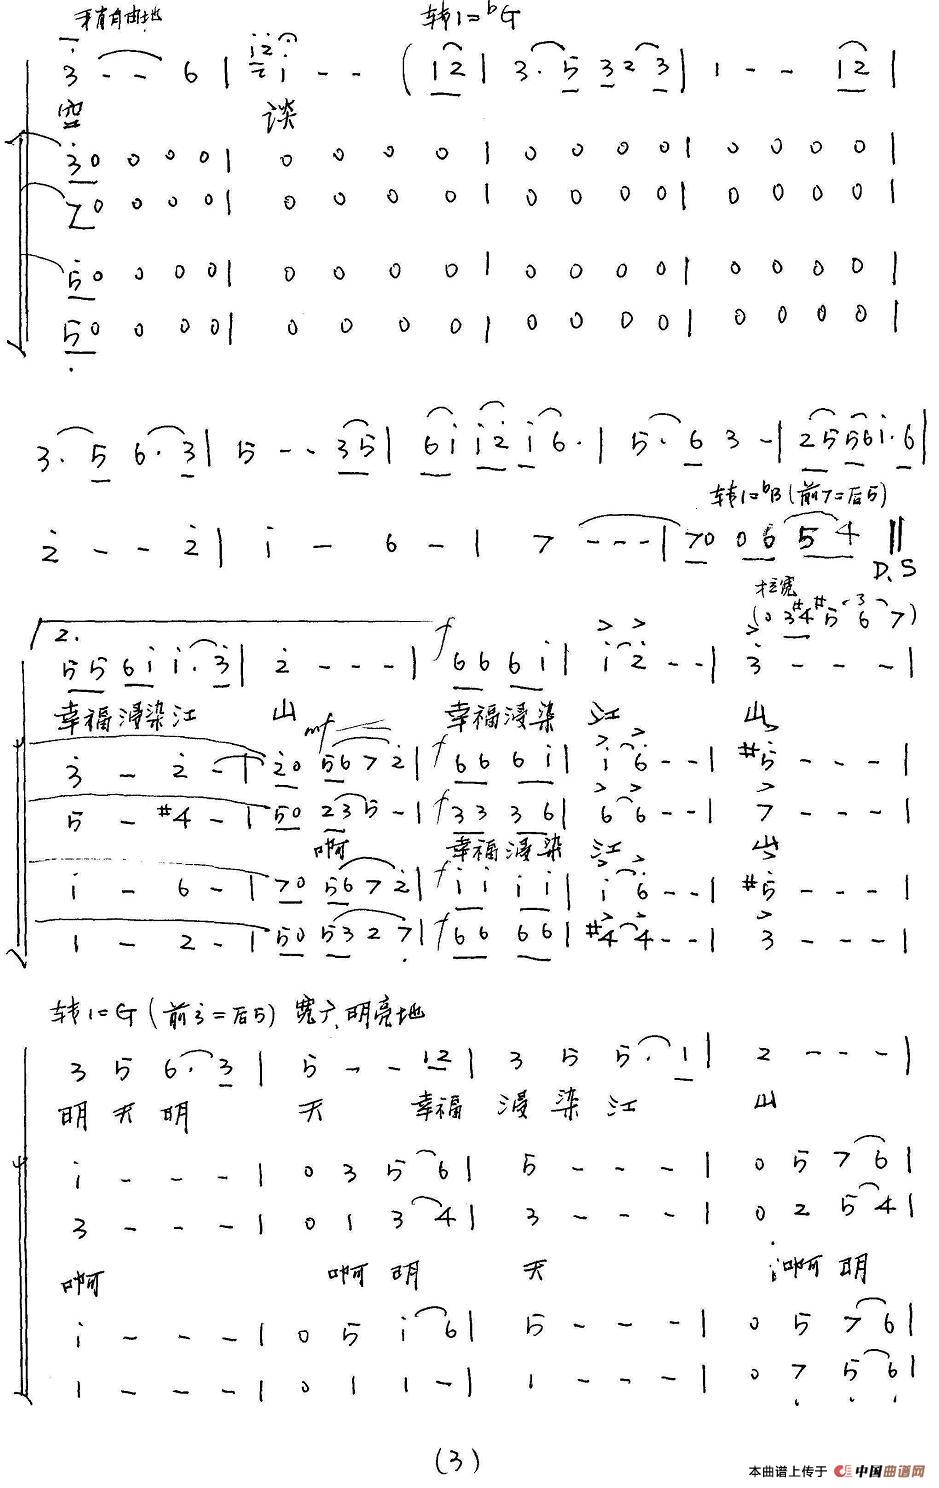 稍自由地 转1=ᵇG
3 - - 6 | i - - ( 1 2 | 3 · 5 3 2 3 | 1 - - 1 2 |
空 谈
3 0 0 0 0 | 0 0 0 0 | 0 0 0 0 | 0 0 0 0 |
7 0 0 0 0 | 0 0 0 0 | 0 0 0 0 | 0 0 0 0 |
5 0 0 0 0 | 0 0 0 0 | 0 0 0 0 | 0 0 0 0 |
5 0 0 0 0 | 0 0 0 0 | 0 0 0 0 | 0 0 0 0 |
3 · 5 6 · 3 | 5 - - 3 5 | 6 i i 2 i 6 · | 5 · 6 3 - | 2 5 5 6 i · 6 |
转1=ᵇB (前7=后5)
2 - - 2 | i - 6 - | 7 - - - | 7 0 0 6 5 4 ‖
D.S
拉宽
(0 3 #4 #5 6 7)
2. f
5 5 6 i i · 3 | 2 - - - | 6 6 6 i | i 2 - - | 3 - - - |
幸福浸染江 山 幸福浸染 江 山
mf
3 - 2 - | 2 0 5 6 7 2 | f 6 6 6 i | i 6 - - | #5 - - - |
5 - #4 - | 5 0 2 3 5 - | f 3 3 3 6 | 6 6 - - | 7 - - - |
啊 幸福浸染 江 山
i - 6 - | 7 0 5 6 7 2 | f i i i i | i 6 - - | #5 - - - |
1 - 2 - | 5 0 5 3 2 7 | f 6 6 6 6 | #4 4 - - | 3 - - - |
转1=G (前3=后5) 宽广、明亮地
3 5 6 · 3 | 5 - - 1 2 | 3 5 5 · 1 | 2 - - - |
明天明 天 幸福 浸染江 山
i - - - | 0 3 5 6 | 5 - - - | 0 5 7 6 |
3 - - - | 0 1 3 4 | 3 - - - | 0 2 5 4 |
啊 啊明 天 啊明
i - - - | 0 5 i 6 | 5 - - - | 0 5 7 6 |
1 - - - | 0 1 1 - | 1 - - - | 0 7 5 6 |
(3)
本曲谱上传于 中国曲谱网